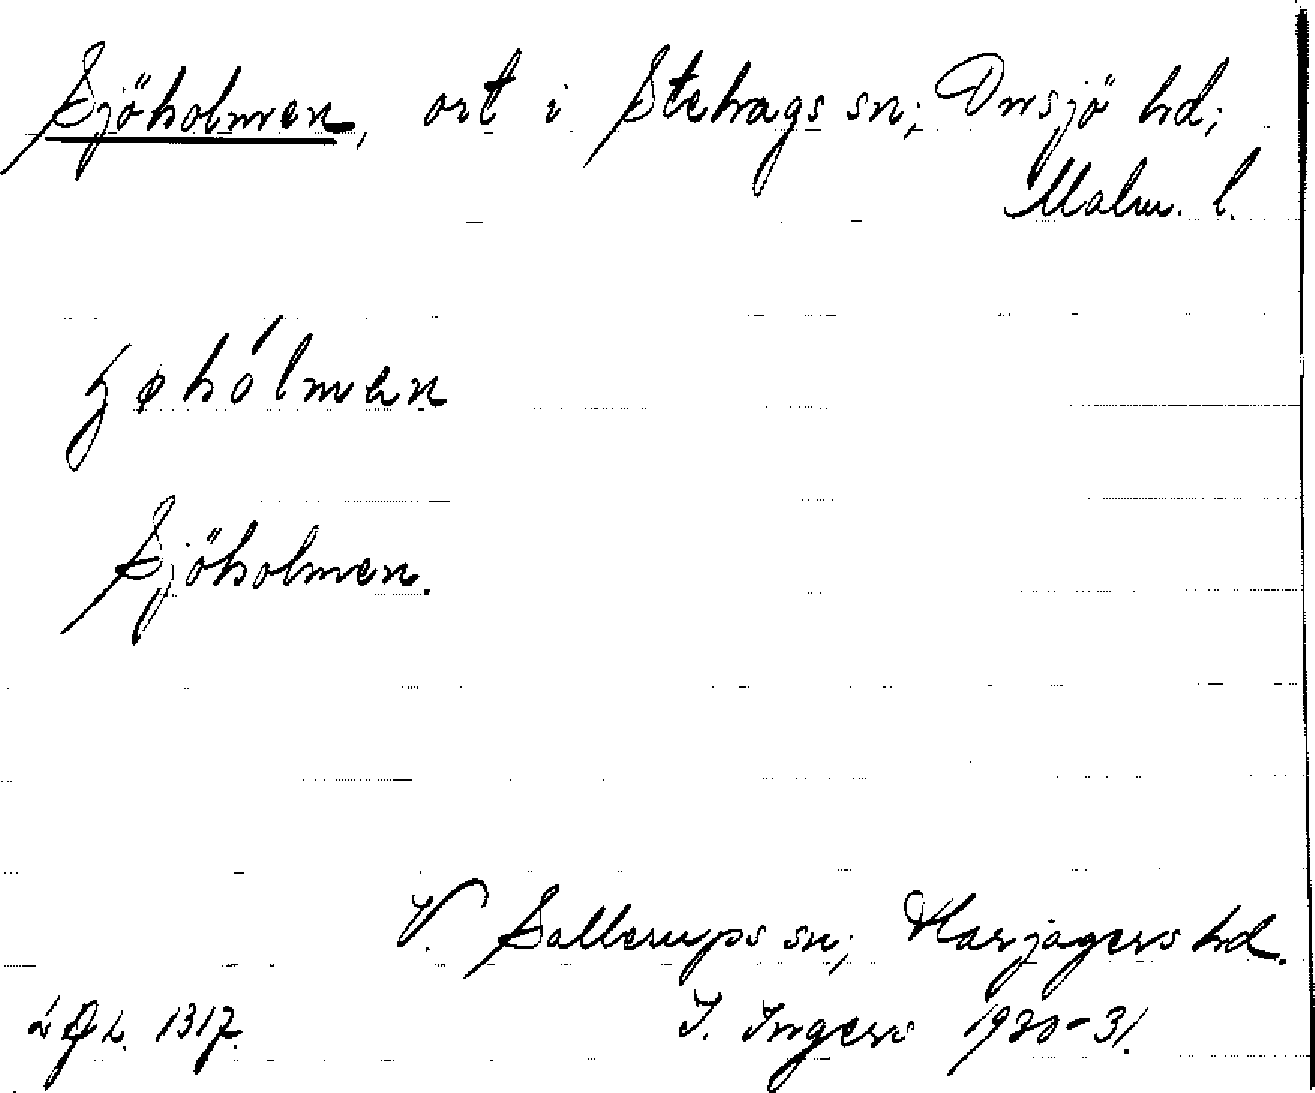 Sjöholmen, ort i Stehags sn; Onsjö hd;
Malm. l.
Sjöholmen.
V. Sallerups sn; Harjagers hd.
1317. I. Ingers 1930-31.